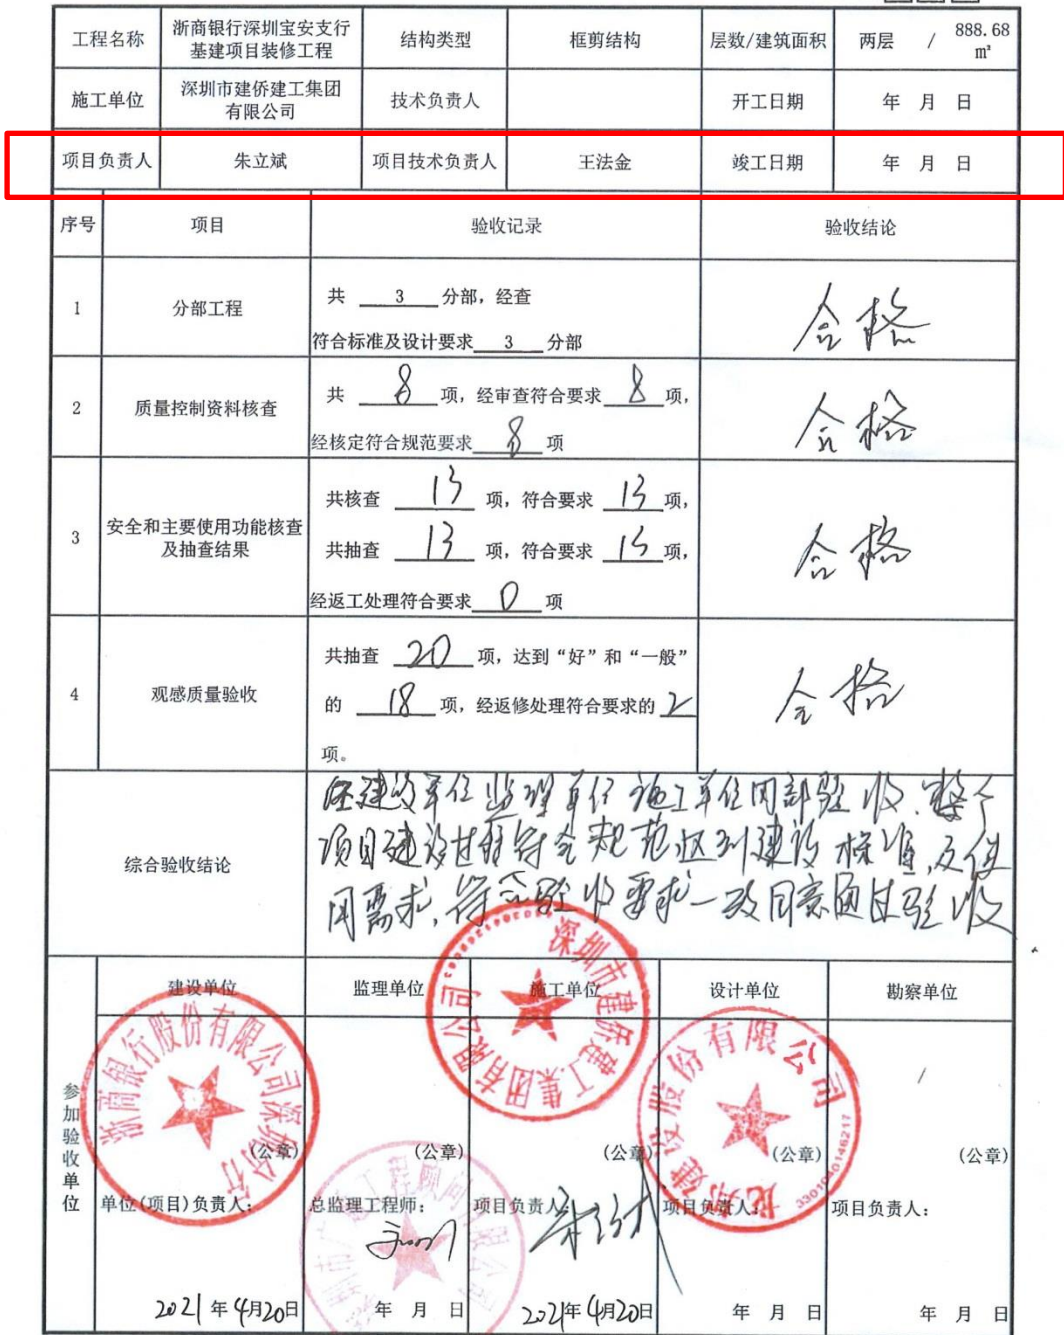 工程名称 浙商银行深圳宝安支行基建项目装修工程 结构类型 框剪结构 层数/建筑面积 两层 / 888.68 m²
施工单位 深圳市建侨建工集团有限公司 技术负责人 开工日期 年 月 日
项目负责人 朱立斌 项目技术负责人 王法金 竣工日期 年 月 日
序号 项目 验收记录 验收结论
1 分部工程 共 3 分部，经查
符合标准及设计要求 3 分部
合格
2 质量控制资料核查 共 8 项，经审查符合要求 8 项，
经核定符合规范要求 8 项
合格
3 安全和主要使用功能核查及抽查结果
共核查 13 项，符合要求 13 项，
共抽查 13 项，符合要求 13 项，
经返工处理符合要求 0 项
合格
4 观感质量验收
共抽查 20 项，达到“好”和“一般”
的 18 项，经返修处理符合要求的 2
项。
合格
综合验收结论
建设单位 监理单位 施工单位 验收 整个
项目建设过程符合规范 达到建设标准，及使
用需求，符合验收要求 一致同意通过验收
参加验收单位
建设单位 监理单位 施工单位 设计单位 勘察单位
浙商银行股份有限公司深圳分行
深圳市建侨建工集团有限公司
建设股份有限公司
3301040146217
/
(公章) (公章) (公章) (公章) (公章)
单位(项目)负责人： 总监理工程师： 项目负责人： 项目负责人： 项目负责人：
2021年4月20日 年 月 日 2021年4月20日 年 月 日 年 月 日